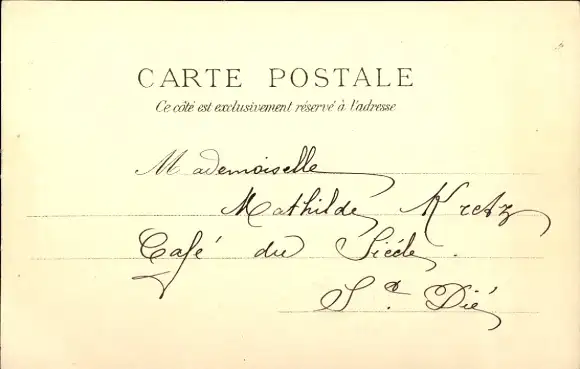 CARTE POSTALE
Ce côté est exclusivement réservé à l'adresse
Mademoiselle
Mathilde Kretz
Café du Siécle.
St. Dié